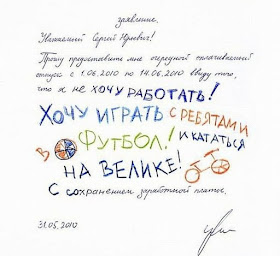 заявление.
Уважаемый Сергей Юрьевич!
Прошу предоставить мне очередной оплачиваемый
отпуск с 1.06.2010 по 14.06.2010 ввиду того,
что я не ХОЧУ РАБОТАТЬ!
ХОЧУ ИГРАТЬ С РЕБЯТАМИ
В ФУТБОЛ! И КАТАТЬСЯ
НА ВЕЛИКЕ!
С сохранением заработной платы.
31.05.2010